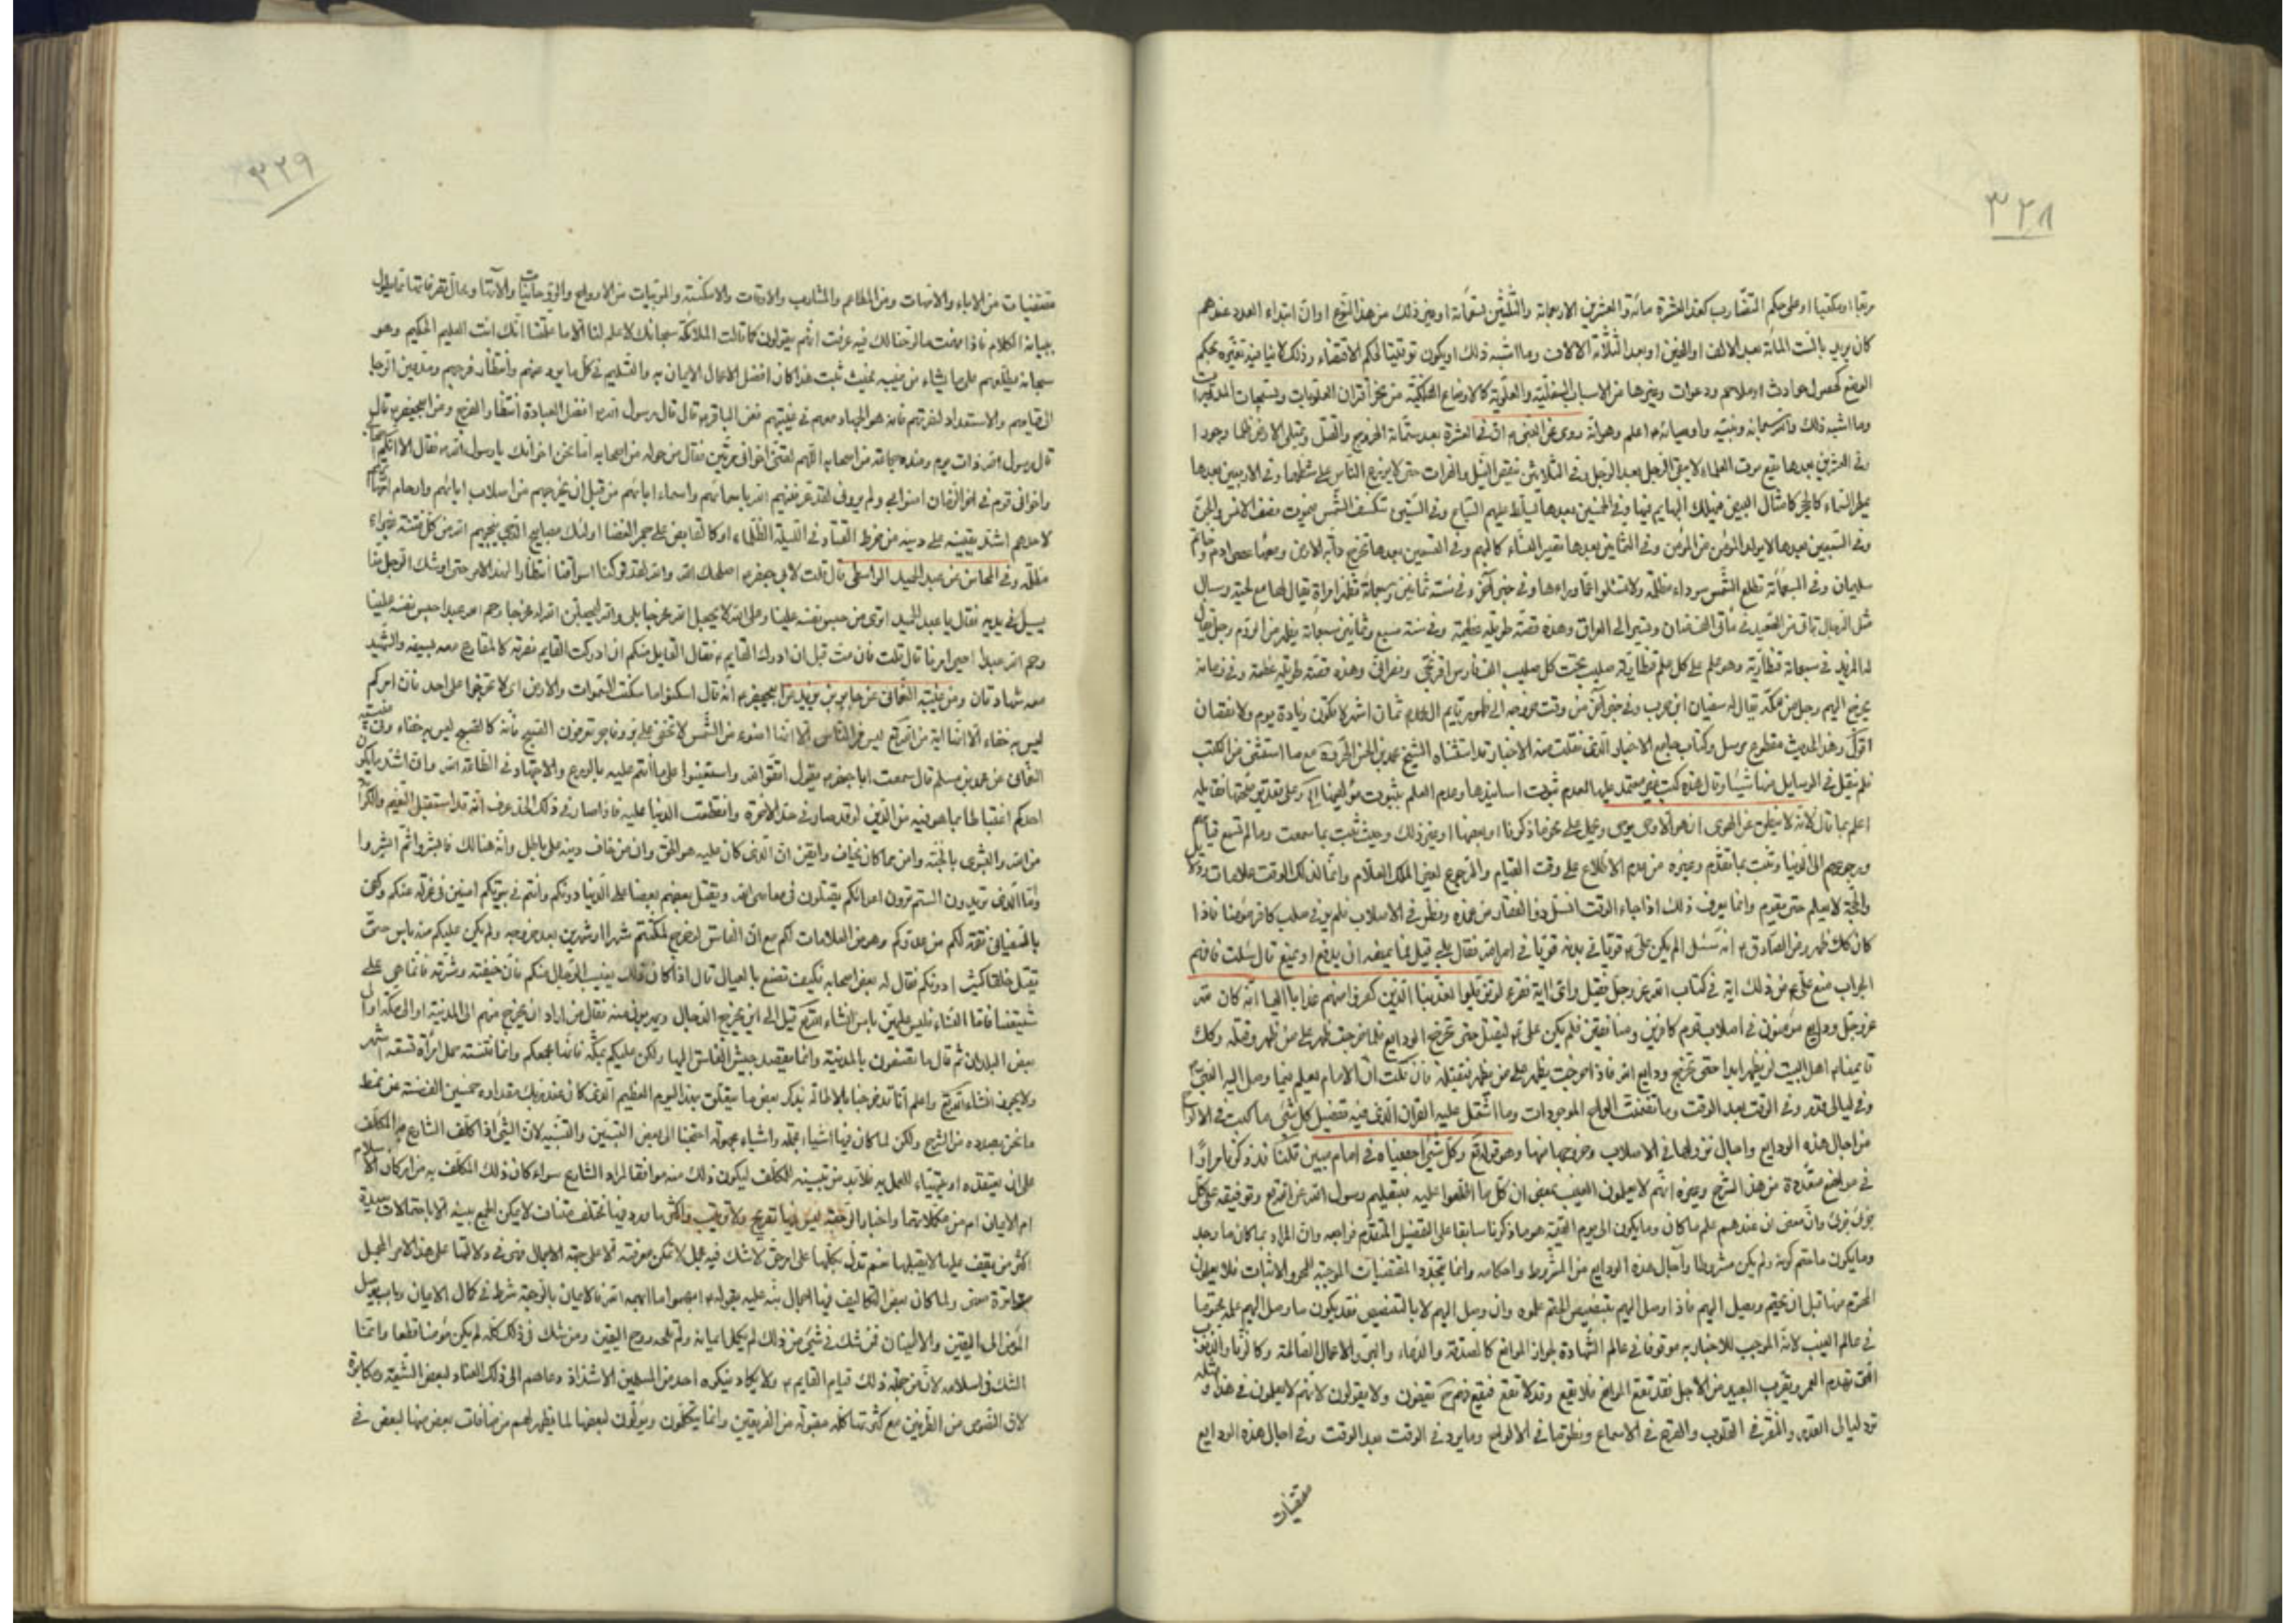 ٣٢٨
كان يريد بالست المائة بعد الالف او المئين او بعد الثلاثة الالاف وما اشبه ذلك او يكون توقيتا لحكم الاقتضاء وذلك لا ينافيه تغيره بحكم
الوضع كحصول حوادث او ملاحم ودعوات وغيرها من الاسباب السفلية والعلوية كالاوضاع الفلكية من نحو اقتران العلويات
وما اشبه ذلك والله سبحانه ونبيه واوصيائه اعلم وهو انه روى عن النبى ان فى العشرة بعد ستمائة الخروج والقتل وتمتلى الارض ظلما وجورا
وفى العشرين بعدها يقع موت العلماء لا يبقى الرجل بعد الرجل وفى الثلاثين ينقص النيل والفرات حتى لا يزرع الناس على شطهما وفى الاربعين بعدها
يمطر السماء كالحجر كامثال البيض فيهلك البهايم فيها وفى الخمسين بعدها يسلط عليهم السباع وفى الستين تنكسف الشمس فيموت نصف الانس والجن
وفى السبعين بعدها لا يولد المؤمن من المؤمن وفى الثمانين بعدها تصير النساء كالبهم وفى التسعين بعدها تخرج دابة الارض ومعها عصى ادم وخاتم
سليمان وفى السبعمائة تطلع الشمس سوداء مظلمة ولا تسئلوا عما وراءها وفى خبر آخر وفى سنة ثمانين وسبعمائة تظهر امراة يقال لها مع لحية وسبال
مثل الرجال تاتى من الصعيد فى مأتى الف عنان وتسير الى العراق وهذه قصة طويلة عظيمة وفى سنة سبع وثمانين وسبعمائة يظهر من الروم رجل يقال
يخرج اليهم رجل من مكة يقال له سفيان ابن حرب وفى خبر آخر من وقت خروجه الى ظهور قايم ال محمد ثمان اشهر لا يكون زيادة يوم ولا نقصان
اقول وهذا الحديث مقطوع مرسل وكتاب جامع الاخبار الذى نقلت منه الاخبار قد استثناه الشيخ محمد بن الحسن الحر فى مع ما استثنى من الكتب
فلم ينقل فى الوسايل منها شيئا وقال هذه كتب غير معتمد عليها لعدم ثبوت اسانيدها وعدم العلم بثبوت مؤلفيها وعلى تقدير صحتها فقايله
اعلم بما قال لانه لا ينطق عن الهوى ان هو الا وحى يوحى ويحمل على نحو ما ذكرنا او بعضها او غير ذلك وحيث ثبت بما سمعت وما لم تسمع قيامهم
ورجوعهم الى الدنيا وثبت بما تقدم وغيره من عدم الاطلاع على وقت القيام والرجوع لغير الملك العلام وانما لذلك الوقت علامات
والحجة لا يعلم حتى يقوم وانما يعرف ذلك اذا جاء الوقت انسل ذو الفقار من غمده ونظر فى الاصلاب فلم ير فى صلب كافر مؤمنا فاذا
كان كك ظهر وعن الصادق انه سئل الم يكن على قويا فى بدنه قويا فى امر الله فقال بلى قيل فما يمنعه ان يدفع او يمنع قال سئلت فافهم
الجواب منع على من ذلك اية فى كتاب الله عز وجل فقيل واى اية فقرء لو تزيلوا لعذبنا الذين كفروا منهم عذابا اليما انه كان لله
عز وجل ودايع مؤمنون فى اصلاب قوم كافرين ومنافقين فلم يكن على ليقتل حتى تخرج الودايع فلما خرجت ظهر على من ظهر وقتله وكك
قايمنا اهل البيت لن يظهر ابدا حتى تخرج ودايع الله فاذا خرجت يظهر على من يظهر فيقتله فان قلت ان الامام يعلم بما وصل اليه النبى
وفى ليالى قدر وفى الوقت بعد الوقت وما تضمنت الواح الموجودات وما اشتمل عليه القران الذى فيه تفصيل كل شئ ما كتب فى الالواح
من اجال هذه الودايع واحبال نزولها فى الاصلاب وخروجها منها وهو قوله تع وكل شئ احصيناه فى امام مبين قلت قد ذكرنا مرارا
فى مواضع متعددة من هذا الشرح وغيره انهم لا يعلمون الغيب بمعنى ان كل ما اطلعوا عليه فبتعليم رسول الله عن الله تع وتوقيفه على كل
جزئ جزئ وان معنى ان عندهم علم ما كان وما يكون الى يوم القيمة هو ما ذكرنا سابقا على التفصيل المتقدم فراجعه وان المراد بما كان ما وجد
وما يكون ما حتم كونه ولم يكن مشروطا وآجال هذه الودايع من المشروط واحكامه وانما تتجدد المقتضيات الموجبة للمحو والاثبات فلا يعلمون
المحتوم منها قبل ان يحتم ويصل اليهم فاذا وصل اليهم بتفصيص الحتم علموه وان وصل اليهم لا بالتنصيص فقد يكون ما وصل اليهم علمه محتوما
فى عالم الغيب لانه الموجب للاخبار به موقوفا فى عالم الشهادة لجواز الموانع كالصدقة والدعاء والبر والاعمال الصالحة وكالزنا والذنوب
التى تهدم العمر وتقرب البعيد من الاجل فقد تقع الموانع فلا يقع وقد لا تقع فيقع فهم يقفون ولا يقولون لانهم لا يعلمون فى هذا ومثله
ترد ليالى القدر والنقر فى القلوب والقرع فى الاسماع وينطق بما فى الالواح وما يرد فى الوقت بعد الوقت وفى اجال هذه الودايع
مقتضيات
٣٢٩
مقتضيات من الاباء والامهات ومن المطاعم والمشارب والاوقات والامكنة والمربيات من الارواح والروحانيات
ببيانه الكلام فاذا فهمت ما لوحنا لك فيه عرفت انهم يقولون كما قالت الملائكة سبحانك لا علم لنا الا ما علمتنا انك انت العليم الحكيم وهو
سبحانه يطلعهم على ما يشاء من غيبه بحيث ثبت هذا كان افضل الاعمال الايمان به والتسليم فى كل ما يرد عنهم وانتظار فرجهم
لقيامهم والاستعداد لنصرتهم فانه هو الجهاد معهم فى غيبتهم فعن الباقر قال قال رسول الله افضل العبادة انتظار الفرج وعن ابيجعفر قال
قال رسول الله ذات يوم وعنده جماعة من اصحابه اللهم لقنى اخوانى مرتين فقال من حوله من اصحابه اما نحن اخوانك يا رسول الله فقال لا انكم اصحابى
واخوانى قوم فى اخر الزمان امنوا بى ولم يرونى لقد عرفنيهم الله باسمائهم واسماء ابائهم من قبل ان يخرجهم من اصلاب ابائهم وارحام امهاتهم
لاحدهم اشد بقية على دينه من خرط القتاد فى الليلة الظلماء او كالقابض على جمر الغضا اولئك مصابيح الدجى ينجيهم الله من كل فتنة غبراء
مظلمة وفى المحاسن عن عبد الحميد الواسطى قال قلت لابى جعفر اصلحك الله والله لقد تركنا اسواقنا انتظارا لهذا الامر حتى اوشك الرجل منا
يسئل فى يديه فقال يا عبد الحميد اترى من حبس نفسه على الله لا يجعل الله له مخرجا بلى والله ليجعلن الله له مخرجا رحم الله عبدا حبس نفسه علينا
رحم الله عبدا احيى امرنا قال قلت فان مت قبل ان ادرك القايم فقال القايل منكم ان ادركت القايم نصرته كالمقارع معه بسيفه والشهيد
معه شهادتان ومن غيبة النعمانى عن جابر بن يزيد عن ابيجعفر انه قال اسكنوا ما سكنت السموات والارض اى لا تخرجوا على احد فان امركم
ليس به خفاء الا انها اية من الله ليس من الناس الا انها اضوء من الشمس لا تخفى على بر ولا فاجر تعرفون الصبح فانه كالصبح ليس به خفاء وفى غيبة
النعمانى عن محمد بن مسلم قال سمعت ابا جعفر يقول اتقوا الله واستعينوا على ما انتم عليه بالورع والاجتهاد فى الطاعة الله وان اشد ما يكون
احدكم اغتباطا بما هو فيه من الدين لو قد صار فى حد الاخرة وانقطعت الدنيا عليه فاذا صار فى ذلك الحد عرف انه قد استقبل النعيم والكرامة
من الله والبشرى بالجنة وامن مما كان يخاف وايقن ان الذى كان عليه هو الحق وان من خالف دينه على باطل وانه هنالك فابشروا ثم ابشروا
وما الذى تريدون الستم ترون اعدائكم يقتلون فى معاصى الله ويقتل بعضهم بعضا على الدنيا دونكم وانتم فى بيوتكم امنين فى عزلة عنكم وكفى
بالسفيانى نقمة لكم من عدوكم وهو من العلامات لكم مع ان الفاسق لو خرج لمكثتم شهرا او شهرين بعد خروجه ولم يكن عليكم منه باس حتى
يقتل خلقا كثيرا دونكم فقال له بعض اصحابه فكيف نصنع بالعيال قال اذا كان ذلك يتغيب الرجال منكم فان خيفته وشرته فانما هى على
شيعتنا فاما النساء فليس عليهن باس انشاء الله تع قيل الى اين يخرج الرجال ويهربون منه فقال من اراد ان يخرج منهم الى المدينة او الى مكة او الى
بعض البلدان ثم قال ما تصنعون بالمدينة وانما يقصد جيش الفاسق اليها ولكن عليكم بمكة فانها مجمعكم وانما فتنته حمل امراة تسعة اشهر
ولا يجوزها انشاء الله تع واعلم انا قد خرجنا بالاطالة بذكر بعض ما يتعلق بهذا اليوم العظيم الذى كان عند ربك مقداره خمسين الف سنة عن نمط
ما نحن بصدده من الشرح ولكن لما كان فيها اشياء مجملة واشياء مجهولة احتجنا الى بعض التبيين والتنبيه لان الشئ اذا كلف الشارع به المكلف
على ان يعتقده او يتهيأ للعمل به فلابد من تبيينه للمكلف ليكون ذلك منه موافقا لمراد الشارع سواء كان ذلك المكلف به من اركان الاسلام
ام الايمان ام من مكملاتهما واخبار الرجعة ليس فيها تصريح ولا ترتيب واكثر ما ورد فيها مختلف متناف لا يمكن الجمع بينه الا باحتمالات بعيدة
اكثر من يقف عليها لا يقبلها نعم تدل بكلها على امر حق لا شك فيه مجمل لا تمكن معرفته الا على جهة الاجمال فهى فى دلالتها على هذا الامر المجمل
متواترة معنى ولما كان بعض التكاليف فيها اجمال نبه عليه بقوله ابهموا ما ابهمه الله فالايمان بالرجعة شرط فى كمال الايمان وباب يوصل
المؤمن الى اليقين والاطمينان فمن شك فى شئ من ذلك لم يكمل ايمانه ولم تلجه روح اليقين ومن شك فى ذلك كله لم يكن مؤمنا قطعا وانما
الشك فى اسلامه لان من جملة ذلك قيام القايم ولا يكاد ينكره احد من المسلمين الا شذاذ دعاهم الى ذلك العناد لبعض الشيعة ومكابرة
لان النصوص من الطرفين مع كثرتها كلها مقبولة من الفريقين وانما يتكلمون ويؤلون لبعضها لما يظهر لهم من منافات بعض منها لبعض فى